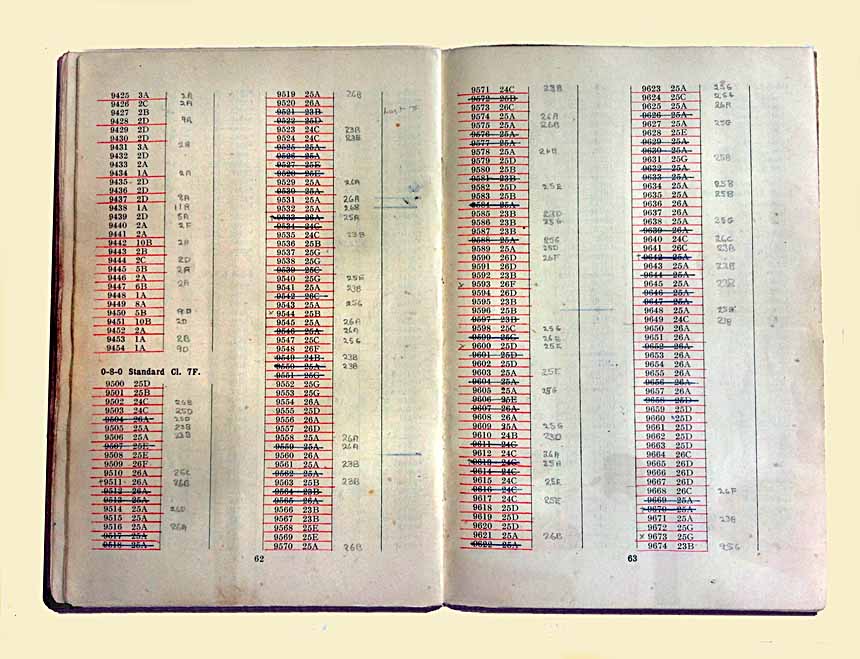 9425 3A 2A
9426 2C 2A
9427 2B
9428 2D 9A
9429 2D
9430 2D
9431 3A 2A
9432 2D
9433 2A
9434 1A 2A
9435 2D
9436 2D
9437 2D 8A
9438 1A 11A
9439 2D 5A
9440 2A 2F
9441 2A
9442 10B 2A
9443 2B
9444 2C 2D
9445 5B 2A
9446 2A
9447 6B 2A
9448 1A
9449 8A
9450 5B 9D
9451 10B 2D
9452 2A
9453 1A 2B
9454 1A 9D
0-8-0 Standard Cl. 7F.
9500 25D
9501 25B
9502 24C 26B
9503 24C 25D
9504 26A 25D
9505 25A 23B
9506 25A 23B
9507 25E
9508 25E
9509 26F
9510 26A 26C
9511 26A 26B
9512 26A
9513 25A
9514 25A 26D
9515 25A
9516 25A 26A
9517 25A
9518 25A
9519 25A 26B
9520 26A
9521 23B
9522 25D
9523 24C 23B
9524 24C 23E
9525 25A
9526 25A
9527 25E
9528 25E
9529 25A 26A
9530 25D
9531 25A 26A
9532 25A 26B
9533 26A 25A
9534 24C
9535 24C 23B
9536 25B
9537 25G
9538 25G
9539 25C
9540 25G 25E
9541 25A 23B
9542 26C
9543 25A 25G
x 9544 25B
9545 25A 26A
9546 25A 26A
9547 25C 25G
9548 26F
9549 24B 23B
9550 25A 23B
9551 25G
9552 25G
9553 25G
9554 26A
9555 25D
9556 26A
9557 26D
9558 25A 26A
9559 25A 26A
9560 26A
9561 25A 23B
9562 25A
9563 25B 23B
9564 23B
9565 26A
9566 23B
9567 23B
9568 25E
9569 25E
9570 25A 26B
62
9571 24C 23B
9572 25B
9573 26C
9574 25A 26A
9575 25A 26B
9576 25A
9577 25A
9578 25A 26B
9579 25D
9580 25B
9581 23B
9582 25D 25E
9583 25B
9584 25A
9585 23B 23D
9586 23B 25G
9587 23B
9588 25A 25G
9589 25A 25D
9590 26D 26F
9591 26D
9592 23B
x 9593 26F
9594 26D
9595 23B
9596 25B
9597 23B
9598 25C 25G
9599 25G 26E
x 9600 25D 25E
9601 25D
9602 25D
9603 25A 25E
9604 25A
9605 25A 25G
9606 25E
9607 26A
9608 26A
9609 25A 25G
9610 24B 23D
9611 24C
9612 24C 26A
9613 24C 25A
9614 24C
9615 24C 25E
9616 24C
9617 24C 25E
9618 25D
9619 25D
9620 25D
9621 25A 26B
9622 25A
9623 25A 25G
9624 25C 25G
9625 25A 26A
9626 25A
9627 25A 25G
9628 25E
9629 25A
9630 25A
9631 25G 25B
9632 25A
9633 25A
9634 25A 25B
9635 25A 25B
9636 26A
9637 26A
9638 25A 25G
9639 26A
9640 24C 26C
9641 26C 23B
9642 25A
9643 25A 23B
9644 25A
9645 25A 23B
9646 25A
9647 25A
9648 25A 25B
9649 24C 23B
9650 26A
9651 26A
9652 26A
9653 26A
9654 25A
9655 26A
9656 26A
9657 26A
9658 25D
9659 25D
9660 25D
9661 25D
9662 25D
9663 25D
9664 26C
9665 26D
9666 26D
9667 26D
9668 26C 26F
9669 25A
9670 25A
9671 25A 23B
9672 25A
x 9673 25G
9674 23B 25G
63